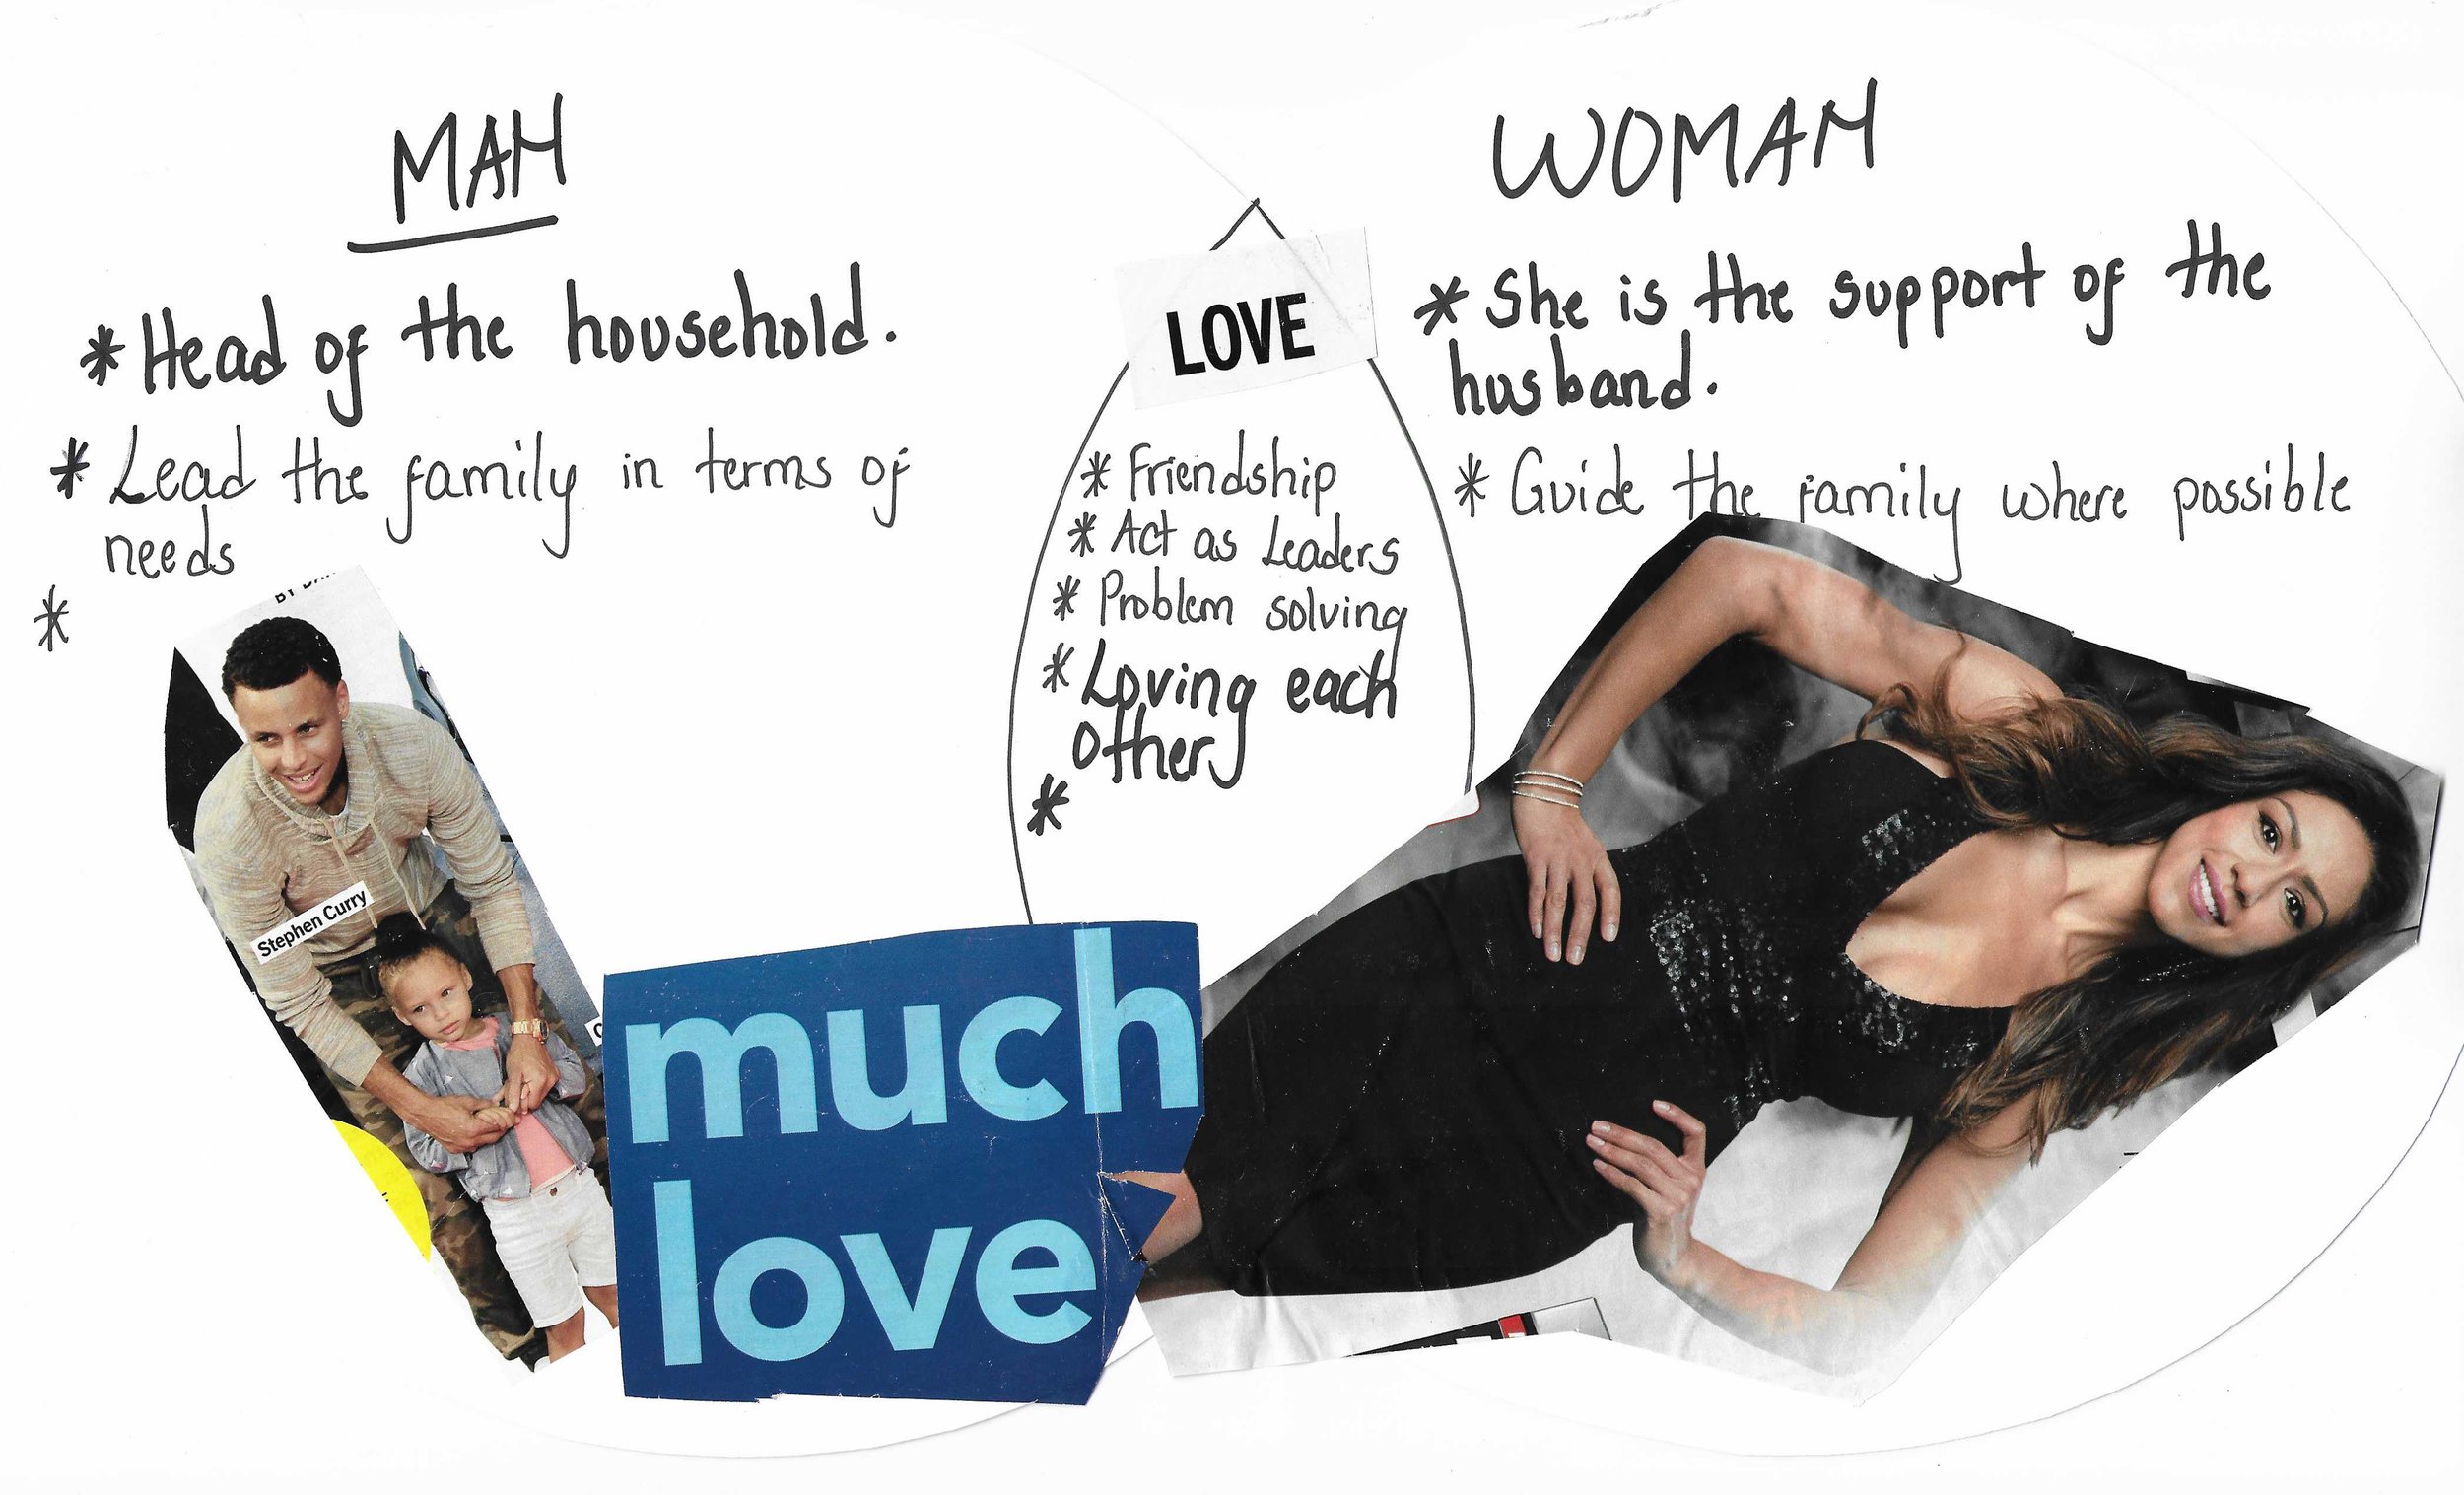 MAN
* Head of the household.
* Lead the family in terms of
needs
*
Stephen Curry
LOVE
* Friendship
* Act as Leaders
* Problem solving
* Loving each
other
*
much
love
WOMAN
* She is the support of the
husband.
* Guide the family where possible